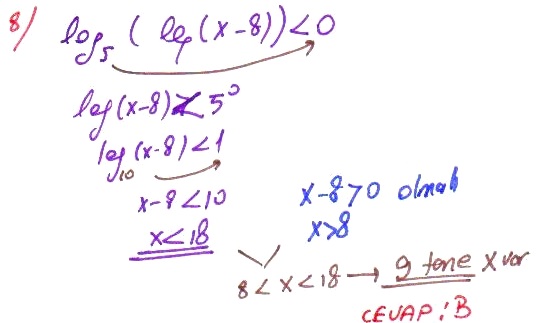 8) log₅ ( log (x-8)) < 0
log (x-8) < 5⁰
log₁₀ (x-8) < 1
x-8 < 10
x < 18
x-8 > 0 olmalı
x > 8
8 < x < 18 → 9 tane x var
CEVAP: B